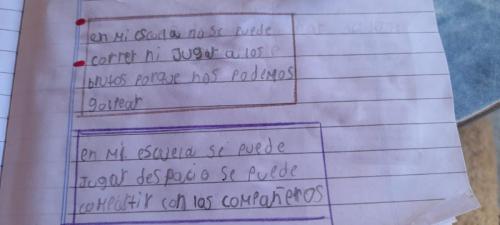 en mi escuela no se puede
correr ni jugar a los
brutos porque nos podemos
golpear
en mi escuela si puede
jugar despacio se puede
compartir con los compañeros